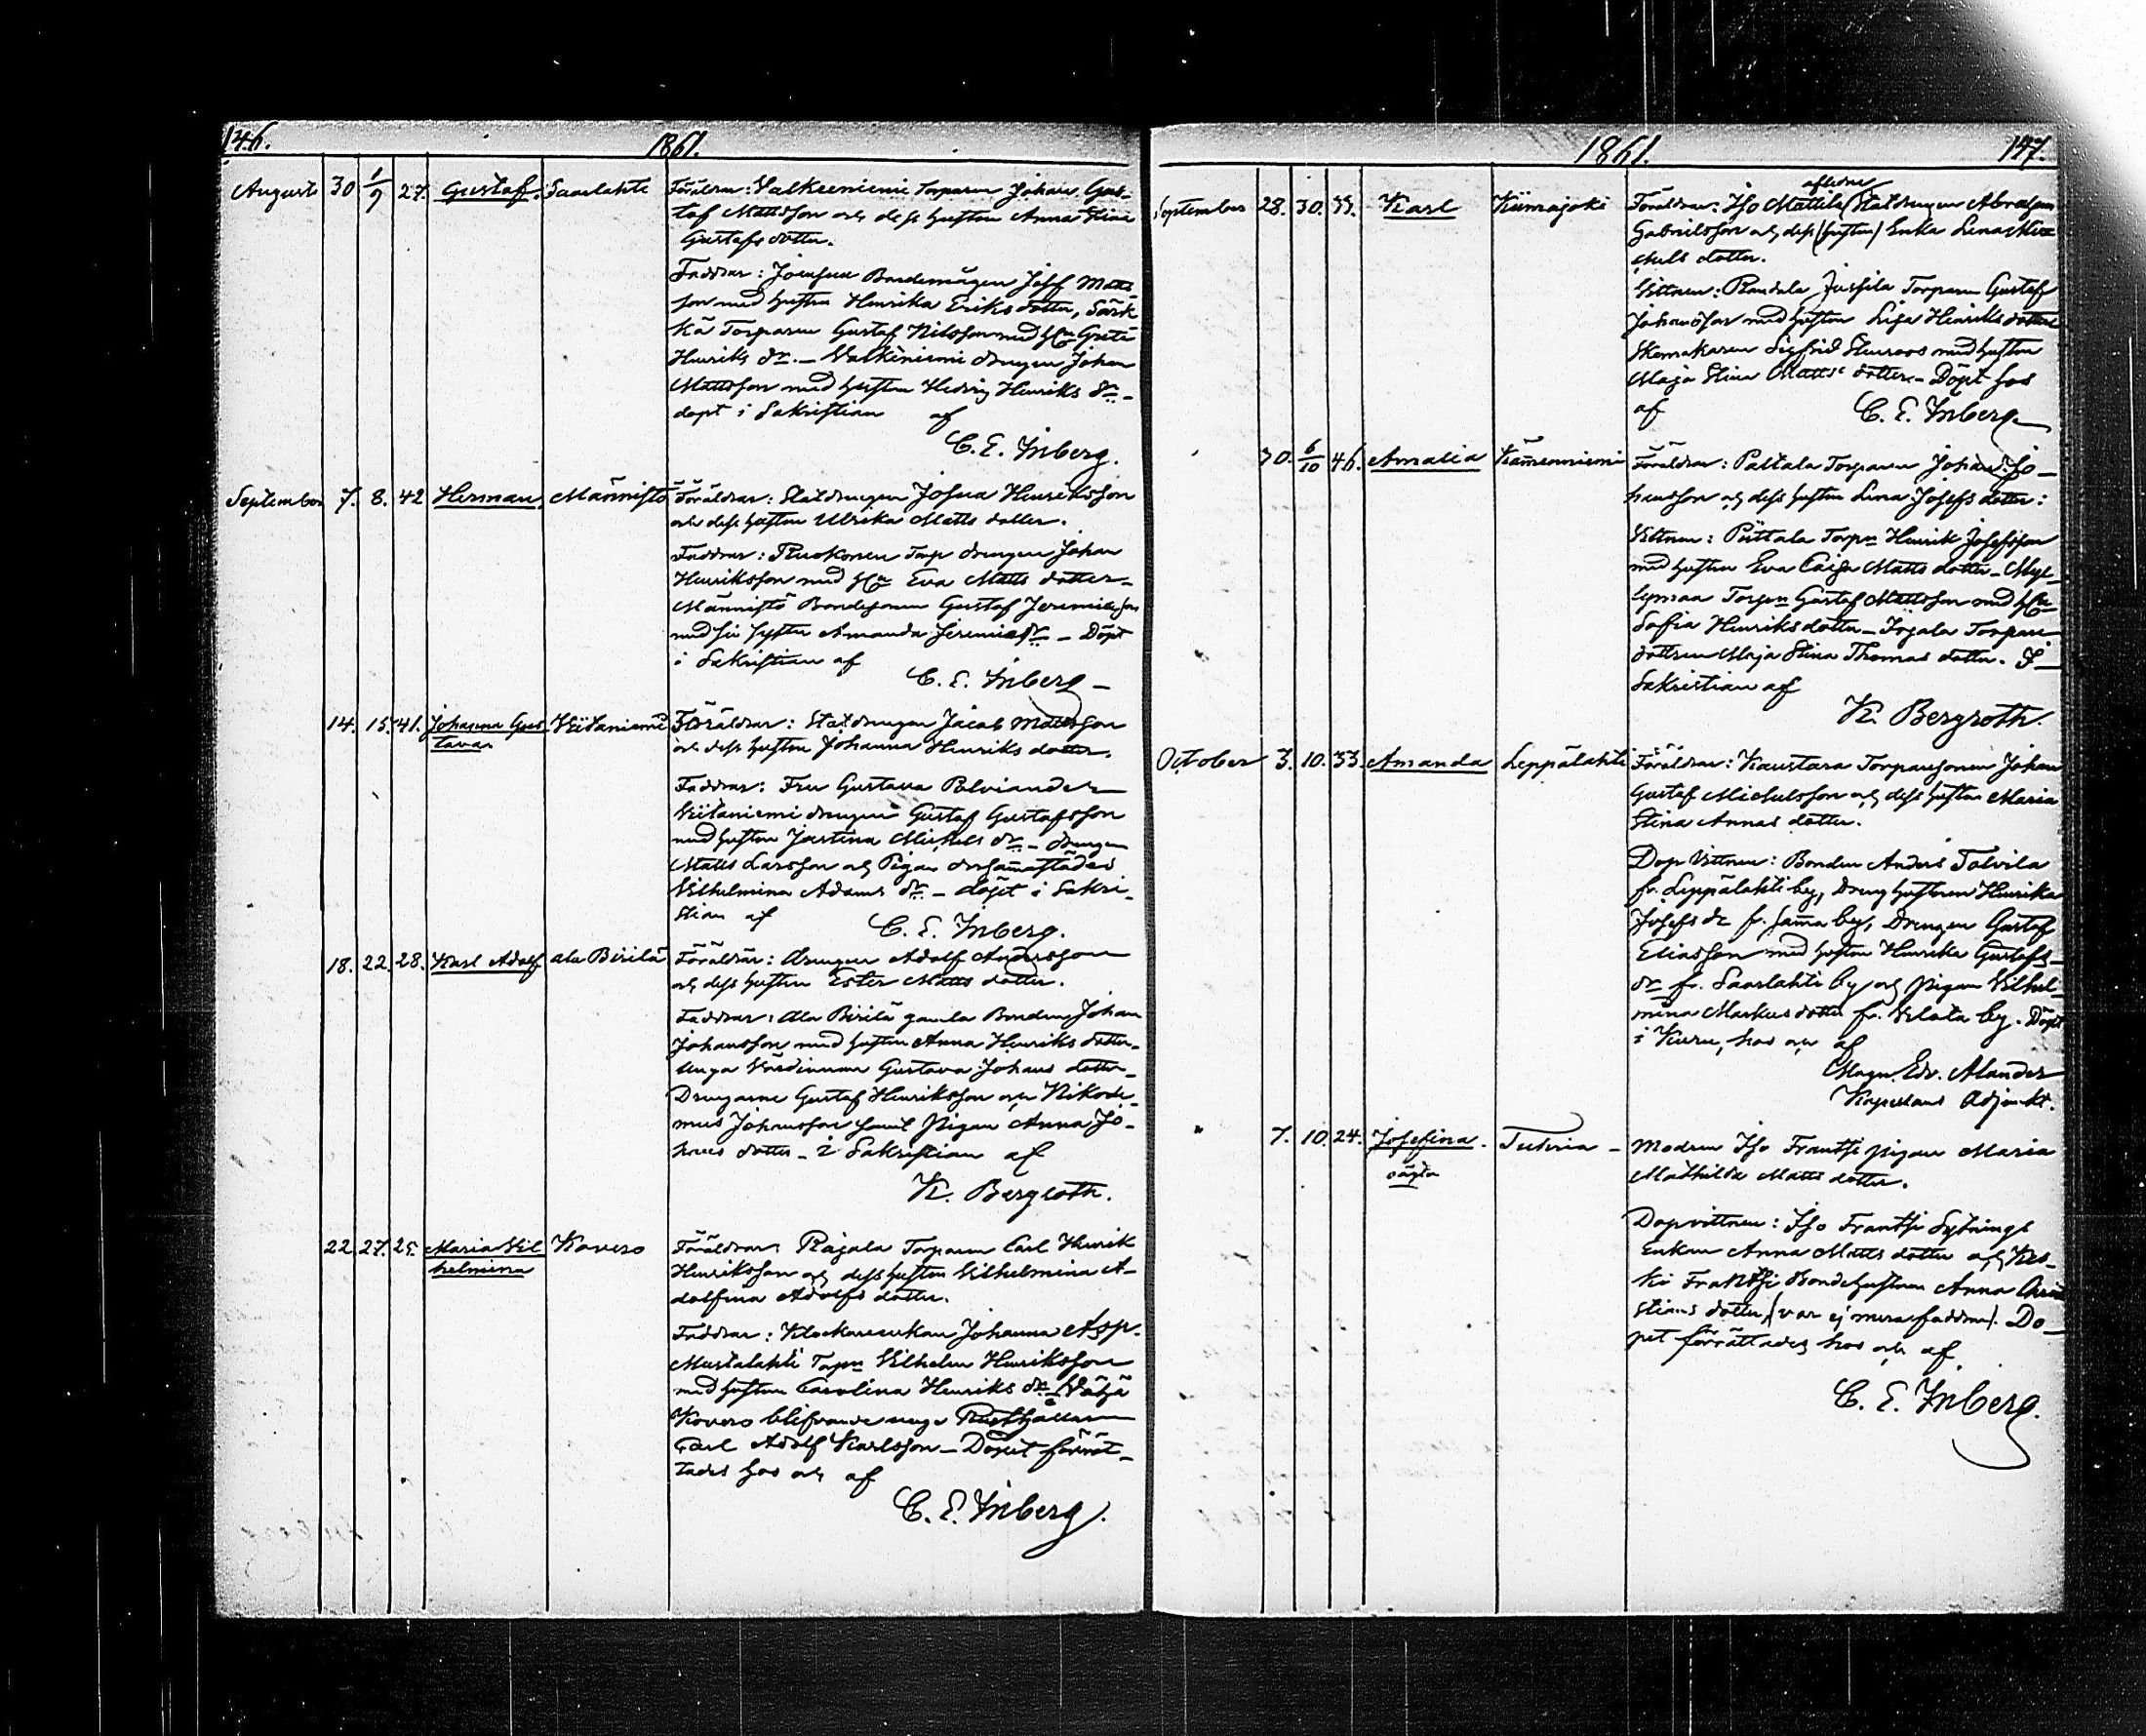 146. 1861.
Augusti 30 1/9 27. Gustaf. Saarlahti Föräldrar: Valkeeniemi Torparen Johan Gus-
taf Mattsson och dess hustru Anna Stina
Gustafs dotter.
Faddrar: Bondemågen Josef Matts
son med hustru Henrika Eriks dotter, Särk
kä Torparen Gustaf Nilsson med Hu Greta
Henriks dr. – Valkeniemi drengen Johan
Mattsson med hustru Hedvig Henriks dr –
döpt i Sakristian af
C. E. Inberg.
September 7. 8. 42 Herman. Männistö Föräldrar: Statdrengen Josua Henriksson
och dess hustru Ulrika Matts dotter.
Faddrar: Ruokonen Torp drengen Johan
Henriksson med Hu Eva Matts dotter –
Männistö Bondesonen Gustaf Jeremiasson
med sin syster Amanda Jeremiædr – Döpt
i Sakristian af
C. E. Inberg –
14. 15. 41. Johanna Gus Viitaniemi Föräldrar: Statdrengen Jacob Mattsson
tava. och dess hustru Johanna Henriks dotter.
Faddrar: Fru Gustava Polviander
Viitaniemi drengen Gustaf Gustafsson
med hustru Justina Michels dr – drengen
Matts Larsson och Pigan
Vilhelmina Adams dr – döpt i Sakri-
stian af
C. E. Inberg.
18. 22. 28. Karl Adolf ala Birilä Föräldrar: drengen Adolf Andersson
och dess hustru Ester Matts dotter.
Faddrar: Ala Birilä gamla Bonden Johan
Johansson med hustru Anna Henriks dotter –
Unga Värdinnan Gustava Johans dotter –
Drengarne Gustaf Henriksson och Nikode-
mus Johansson samt Pigan Anna Jo-
hans dotter – i Sakristian af
K. Bergroth.
22. 27. 25. Maria Vil Kovero Föräldrar: Rajala Torparen Carl Henrik
helmina Henriksson och dess hustru Vilhelmina A-
dolfina Adolfs dotter.
Faddrar: Klockareenkan Johanna Asp.
Mustalahti Torpn Vilhelm Henriksson
med hustru Carolina Henriks dr
Kovero blifvande unga Rusthållaren
Carl Adolf Karlsson – Dopet förrät-
tades hos och af
C. E. Inberg.
1861. 147.
September 28. 30. 33. Karl Kiimajoki Föräldrar: Iso Mattila (aflidne) Statdrengen Abraham
Gabrielsson och dess (hustru) Enka Lena Mi
chels dotter.
Vittnen: Randala Jussila Torparen Gustaf
Johansson med hustru Lisa Henriks dotter
Skomakaren Sigfrid Stenroos med hustru
Maja Stina Matts dotter – Döpt hos
af C. E. Inberg
30. 6/10 46. Amalia Kämenniemi Föräldrar: Paltala Torparen Johan Jo-
hansson och dess hustru Lena Josefs dotter:
Vittnen: Piittala Torpn Henrik Josefsson
med hustru Eva Caisa Matts dotter – Myl-
lymaa Torpn Gustaf Mattsson med Hu
Sofia Henriks dotter – Torpare
dottren Maja Stina Thomas dotter. I
Sakristian af
K. Bergroth.
October 3. 10. 33. Amanda Leppälahti Föräldrar: Kaustara Torparsonen Johan
Gustaf Michelsson och dess hustru Maria
Stina Annas dotter.
Dop Vittnen: Bonden Anders Tolvila
fr. Leppälahti by, Dreng hustrun Henrika
Josefs dr fr. samma by, Drengen Gustaf
Eliasson med hustru Henrika Gustafs-
dr fr. Saarlahti by och pigan Vilhel-
mina Markus dotter fr. Velata by. Döpt
i Kuru, hos och af
Magn. Edv. Alander
Kapellans Adjunkt.
7. 10. 24. Josefina. Tuteria – Modren Iso Frantsi pigan Maria
oägta Mathilda Matts dotter.
Dopvittnen: Iso Frantsi Sytnings
Enkan Anna Matts dotter och Kes-
ki Frantsi Bondehustrun Anna Chri
stians dotter, (var ej mera faddrar). Do-
pet förrättades hos och af
C. E. Inberg.